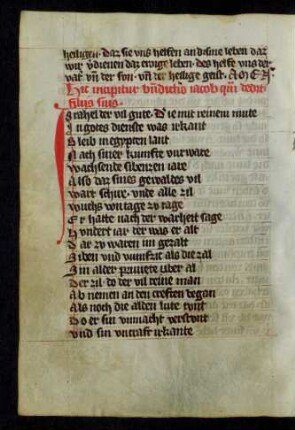 heiligen. Daz sie vns helfen an disme leben daz
wir v̄dienen daz ewige leben. des helfe vns der
vat̉ vn̄ der son. vn̄ der heilige geist. AMEN.
Hic incipitur b̄ndictio iacob qm̄ dedit
filijs suis.
Israhel der vil gute. Die mit reinem mute
In gotes dienste was irkant
Bleib in egypten lant
Nach siner kumfte vurware
Wachsende sibenzen iare
Also daz sines gewaldes vil
wart schire. vnde alle zil
wuchs von tage zv tage
Er hatte nach der warheit sage
Hvndert iar der was er alt
Dar zv waren im gezalt
Siben vnd vumfzic als die zal
In alder pruuete vber al
Der zil do der vil reine man
Ab nemen an den creften began
Als noch die alden lute tvnt
Do er sin vnmacht verstvnt
vnd sin vncraft irkante